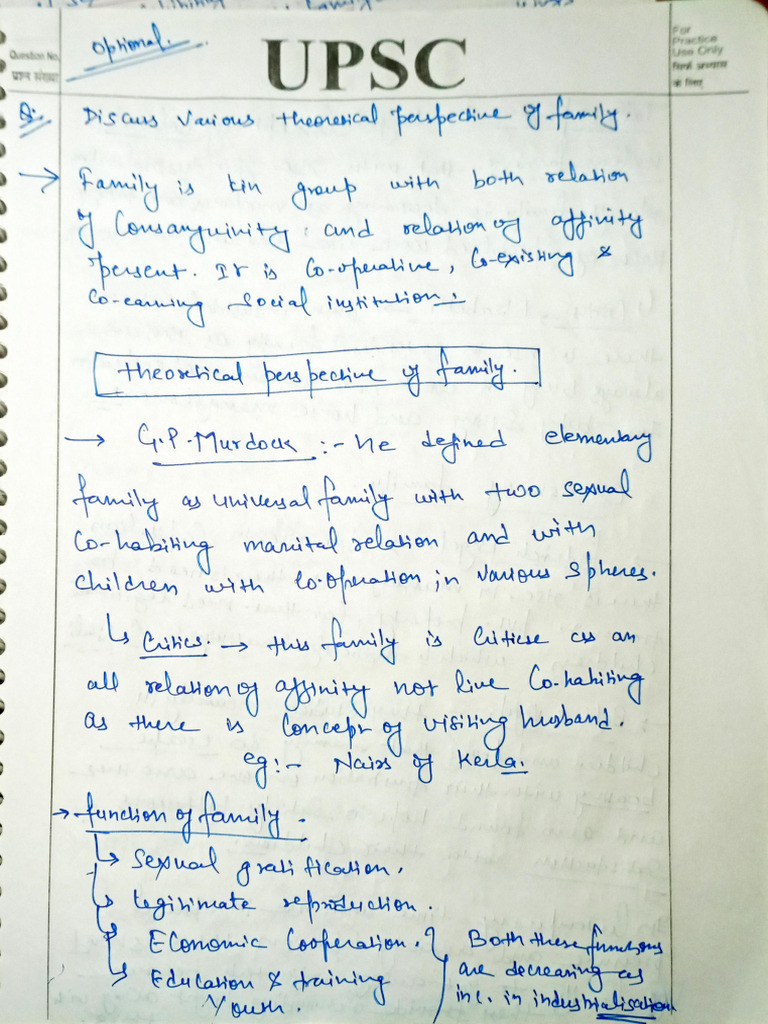 optional.
UPSC
Question No.
प्रश्न संख्या
For
Practice
Use Only
सिर्फ अभ्यास
के लिए
Q:- Discuss various theoretical perspective of family.
→ Family is kin group with both relation
of consanguinity and relation of affinity
persent. It is co-operative, co-existing &
co-earning social institution :
theoretical perspective of family.
→ G.P. Murdock :- He defined elementary
family as universal family with two sexual
co-habiting marital relation and with
children with co-operation in various spheres.
↳ Critics. → this family is critiese as an
all relation of affinity not live co-habiting
as there is concept of visiting husband.
eg:- Nairs of Kerla.
→ function of family.
↳ sexual gratification.
↳ legitimate reproduction.
↳ Economic cooperation. } Both these functions
↳ Education & training are decreasing as
Youth. inc. in industrialisation